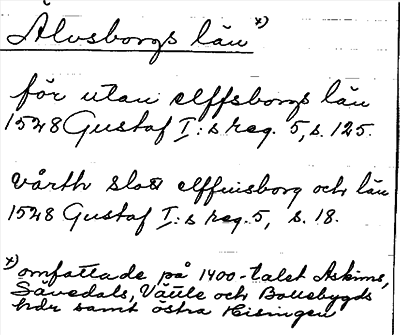 Älvsborgs län x)
för utan elffsborgs län
1528 Gustaf I:s reg. 5, s. 125.
vårth slott elffuisborg och län
1528 Gustaf I:s reg. 5, s. 18.
x) omfattade på 1400-talet Askims,
Sävedals, Vättle och Bollebygds
hdr samt östra Hisingen